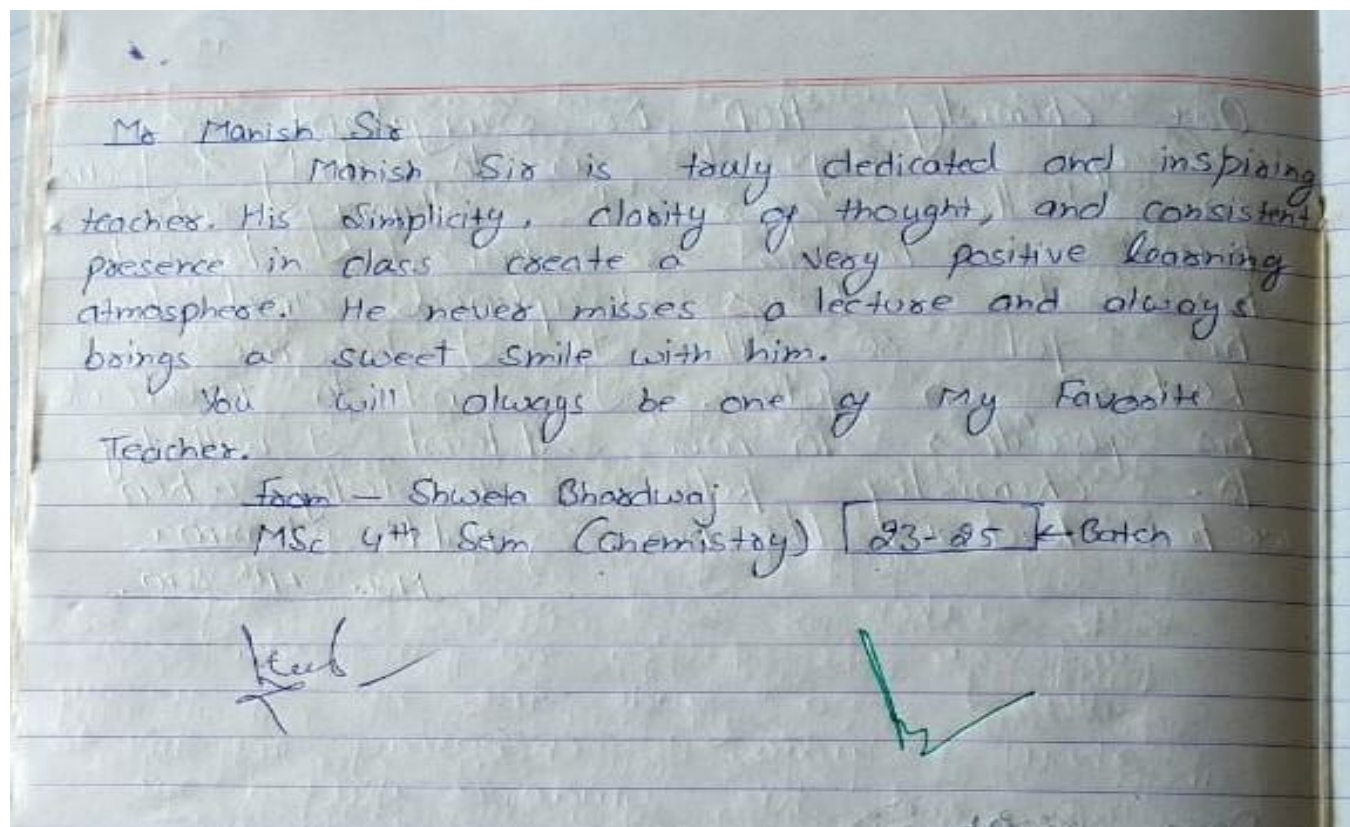 Mr Manish Sir
Manish Sir is truly dedicated and inspiring
teacher. His simplicity, clarity of thought, and consistent
presence in class create a very positive learning
atmosphere. He never misses a lecture and always
brings a sweet smile with him.
You will always be one of my Favorite
Teacher.
From - Shweta Bhardwaj
MSc 4th Sem (Chemistry) [23-25] ← Batch